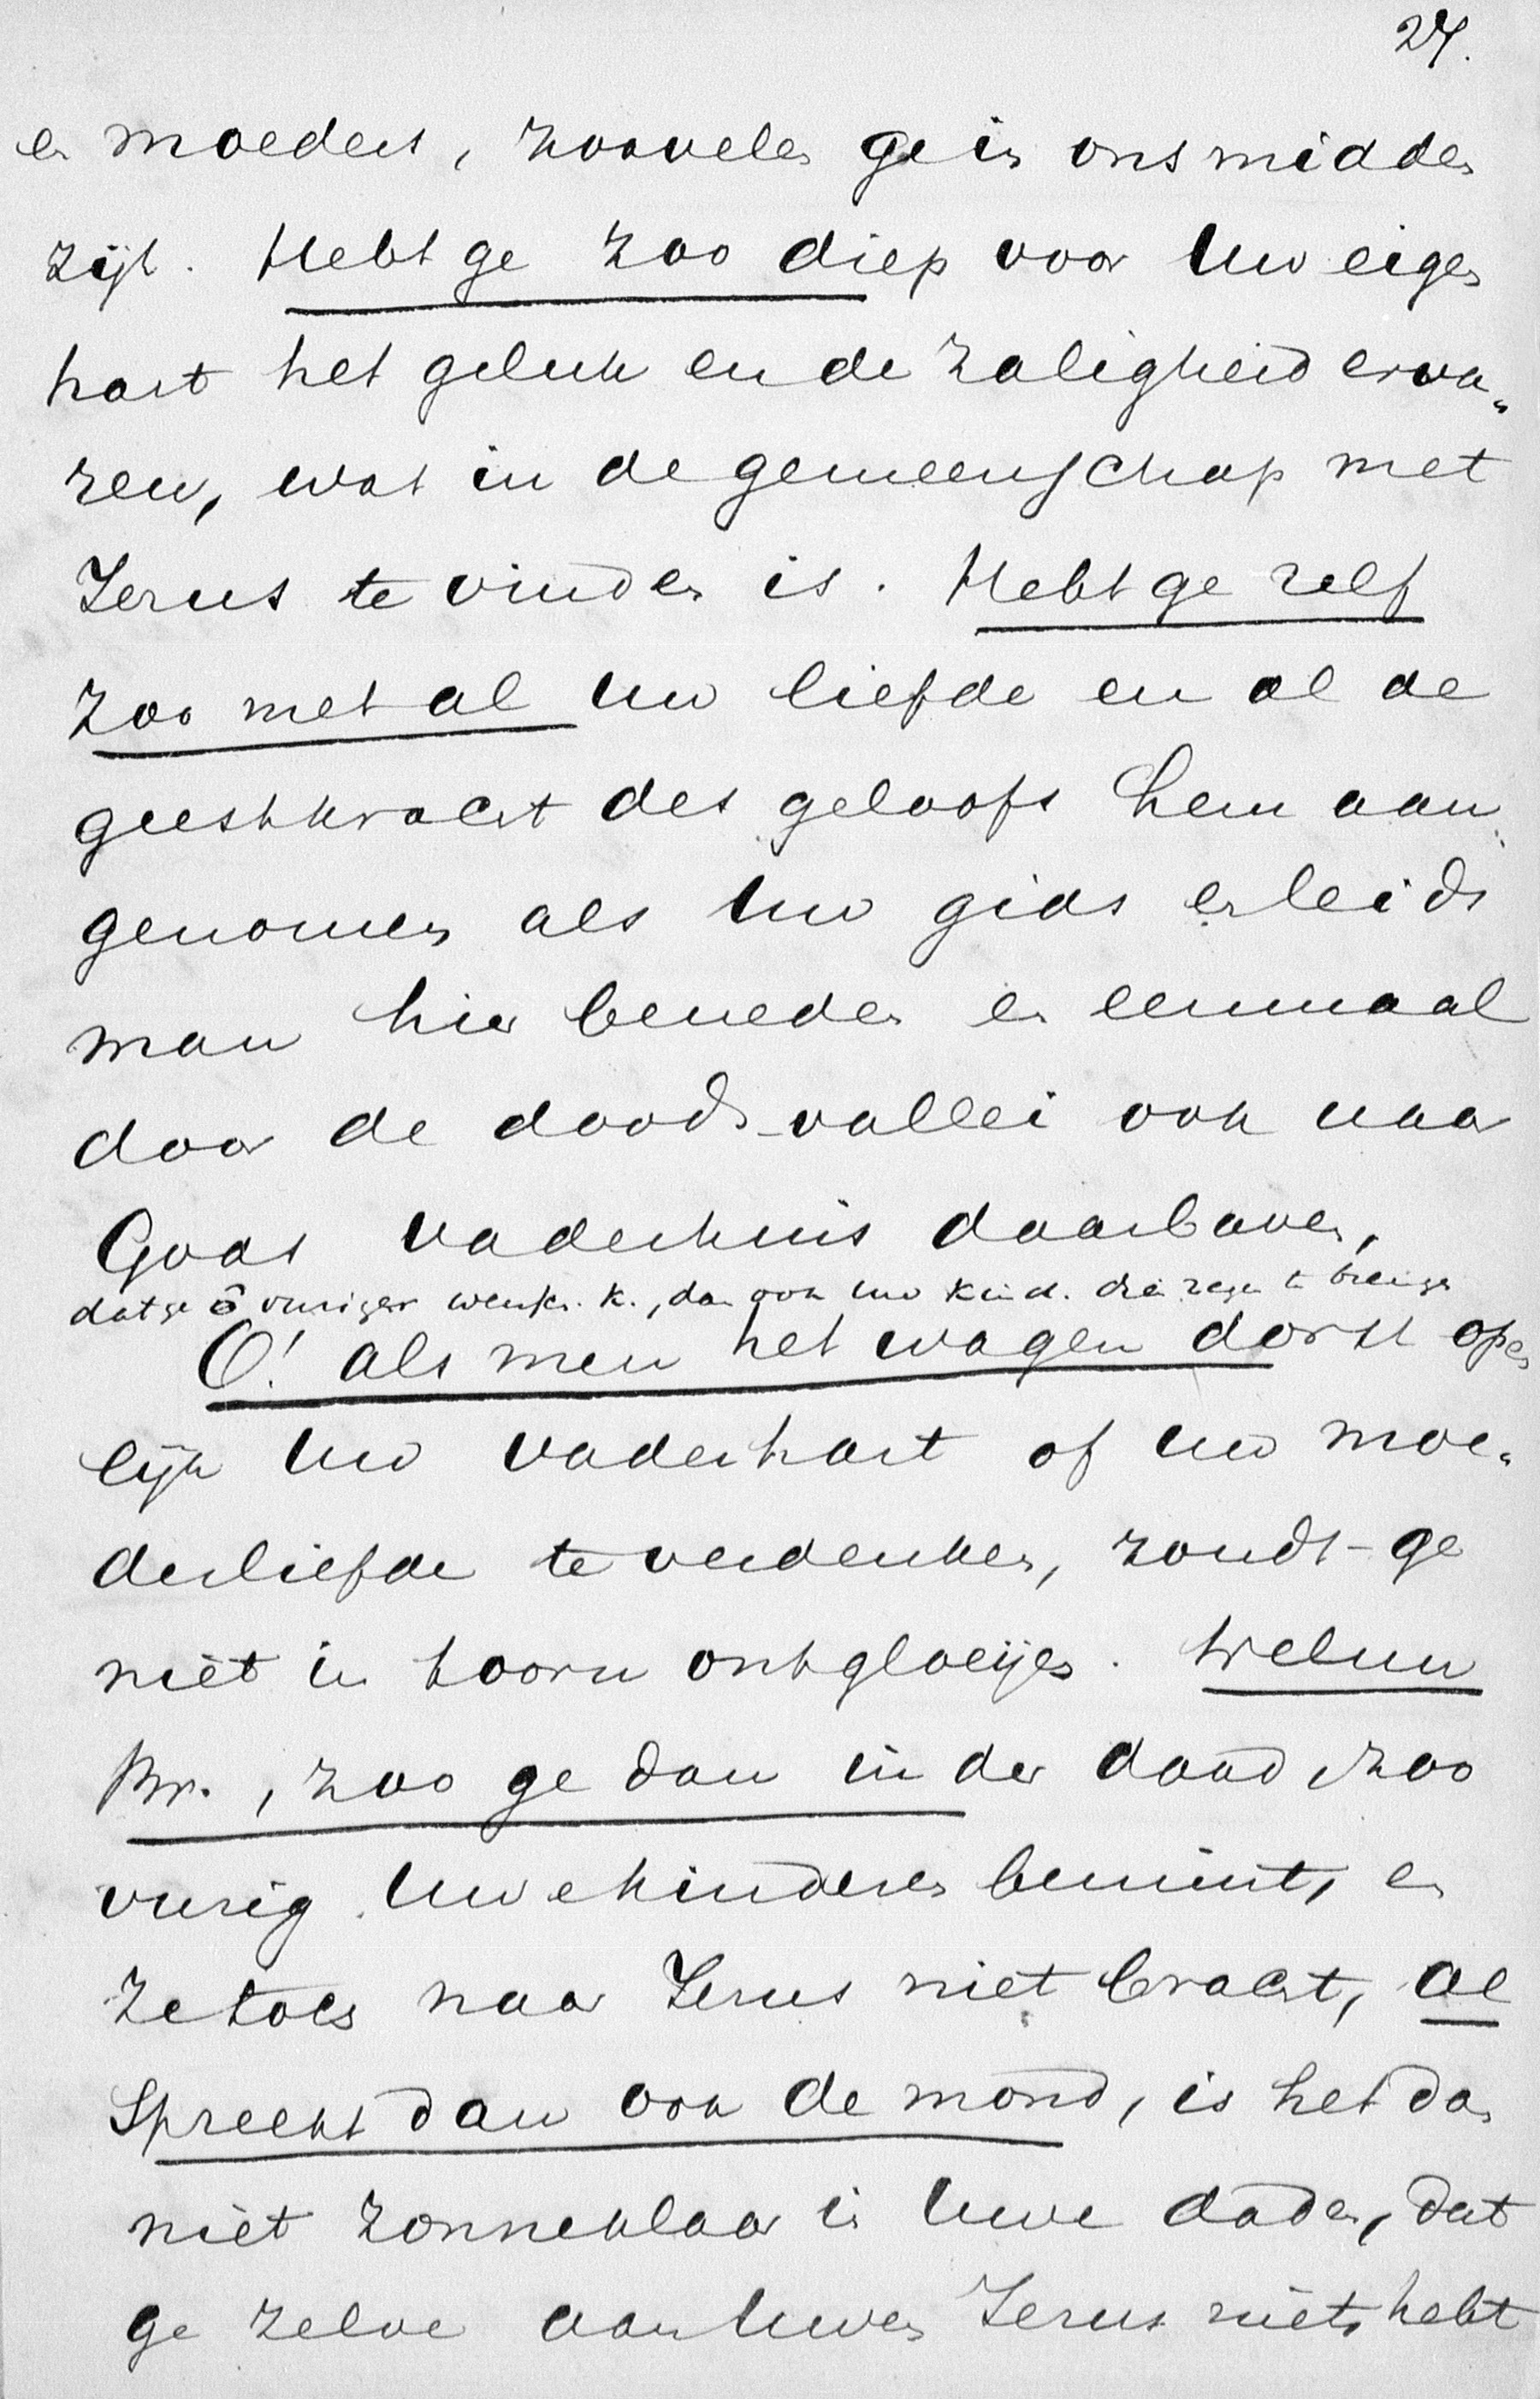 27.
en moeders, zooveler ge in ons midden
zijt. Hebt ge zoo diep voor Uw eigen
hart het geluk en de zaligheid erva„
ren, wat in de gemeenschap met
Jezus te vinden is. Hebt ge zelf
zoo met al Uw liefde en al de
geestkracht des geloofs Hem aan„
genomen als Uw gids en leids
man hier beneden en eenmaal
door de doods-vallei ook naar
Gods Vaderhuis daarboven,
dat ge vuriger wensch. k., dan ook uw kind. die zegen te brengen
O! als men het wagen dorst open
lijk Uw vaderhart of Uw moe„
derliefde te verdenken, zoudt-ge
niet in toorn ontgloeijen. Welnu
Br., zoo ge dan in der daad zoo
vurig Uwe kinderen bemint, en
ze toch naar Jezus niet bracht, al
spreekt dan ook de mond, is het dan
niet zonneklaar in Uwe daden, dat
ge zelve aan Uwen Jezus niets hebt